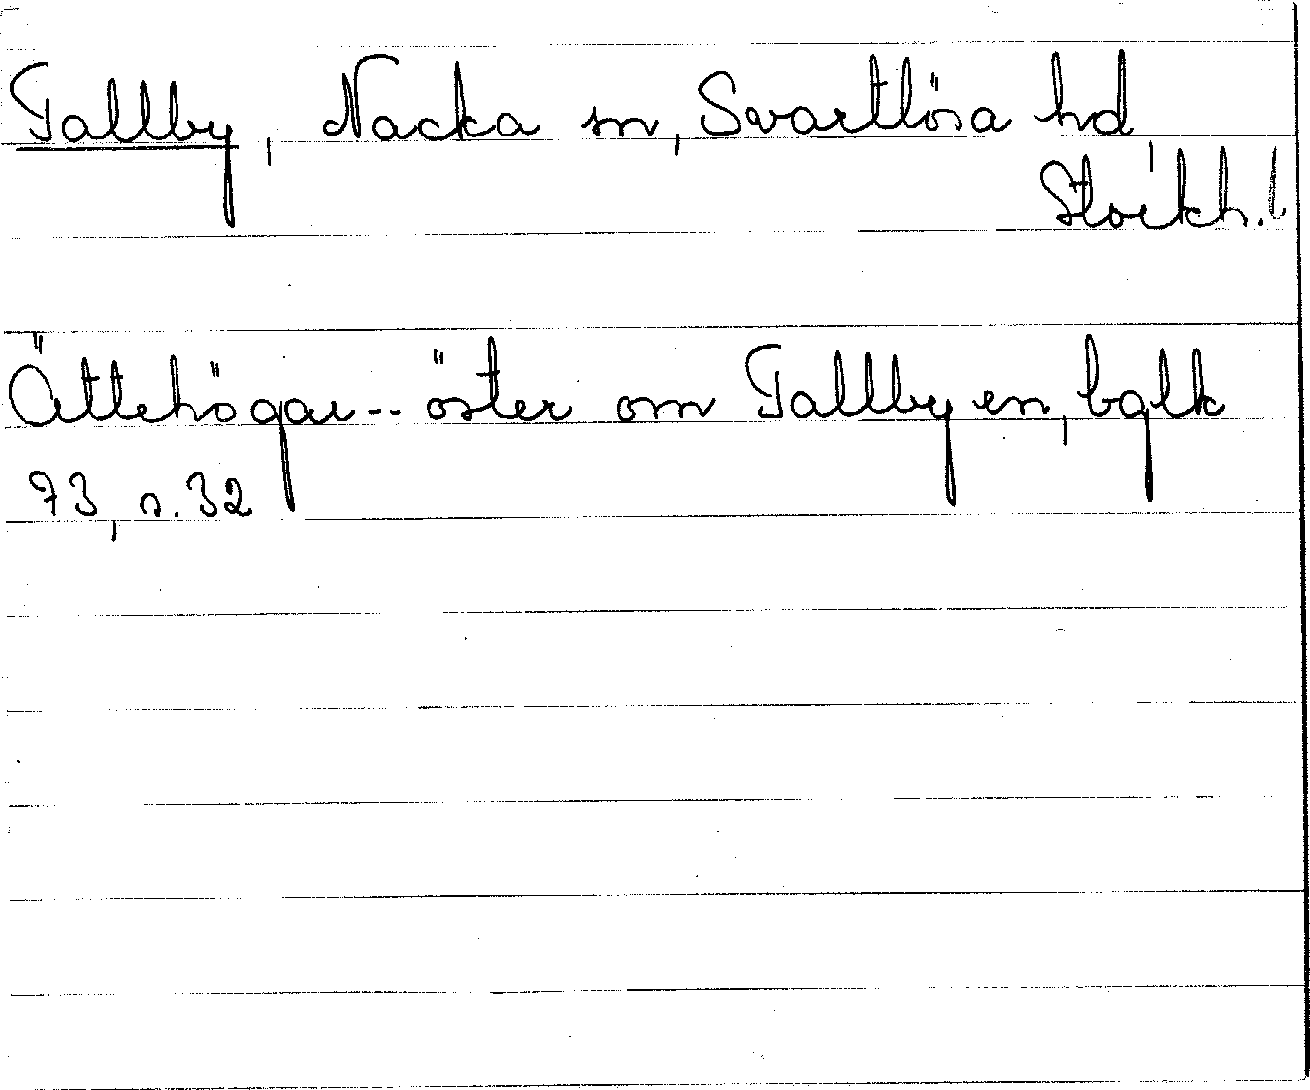 Tallby, Nacka sn, Svartlösa hd,
Stockh. l
Ättehögar -- öster om Tallbyen, bglk
73, s. 32